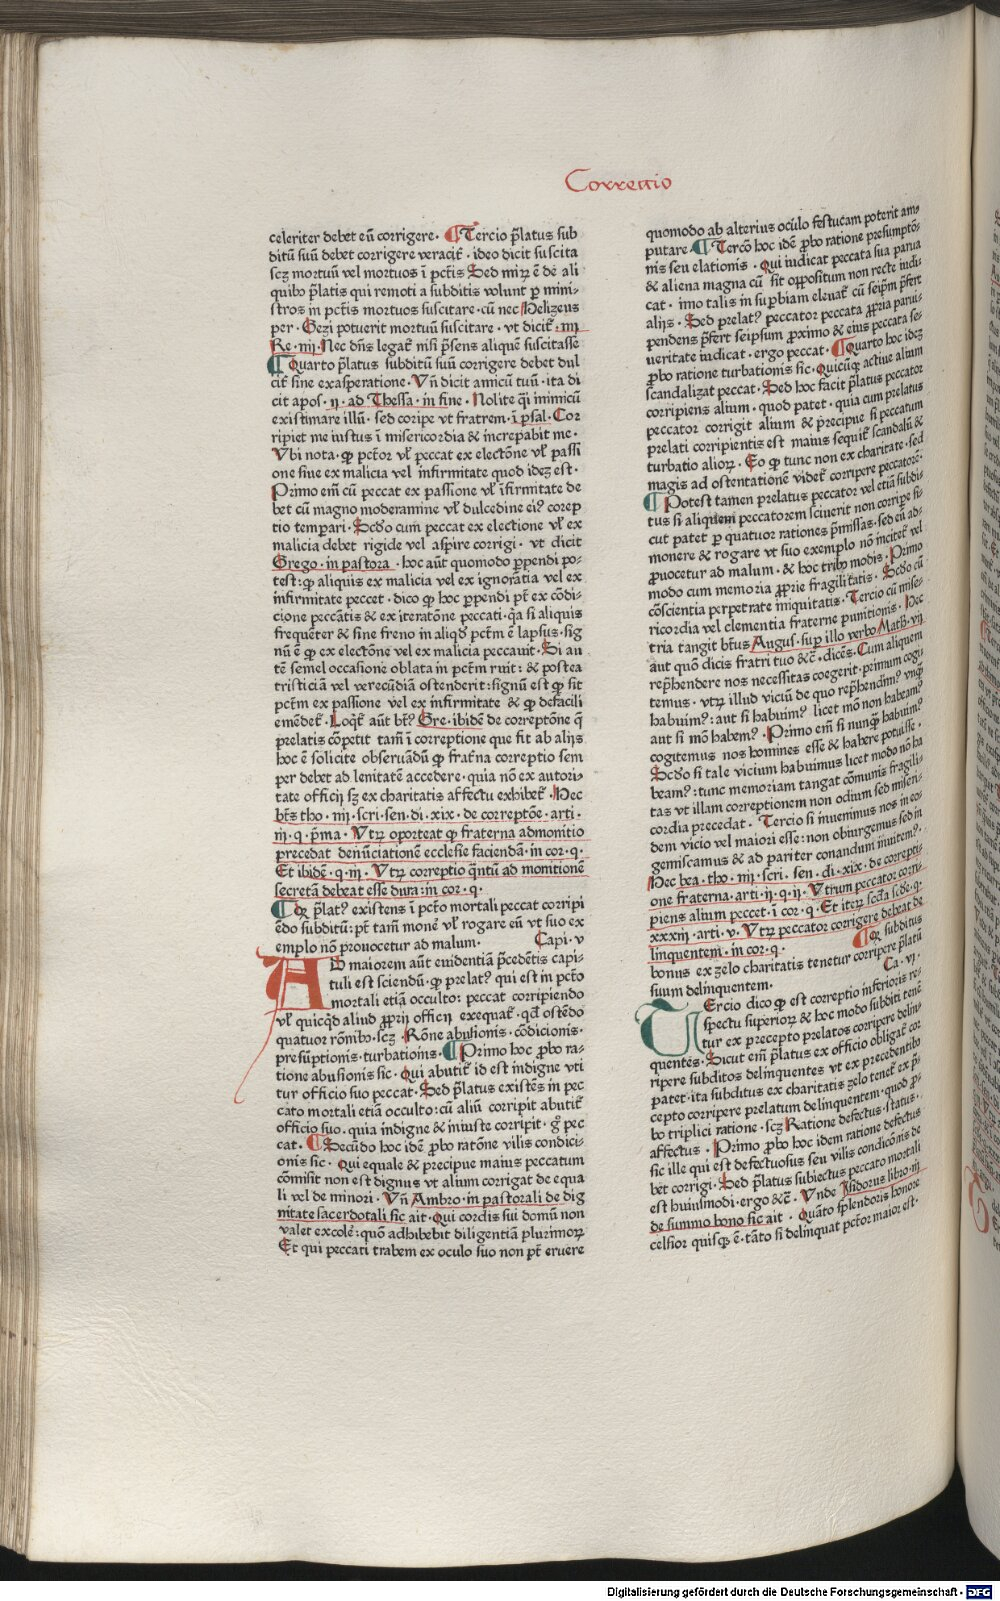 Correctio
celeriter debet eū corrigere. ¶ Tercio p̄latus sub
ditū suū debet corrigere veracit̄. ideo dicit suscita
scz mortuū vel mortuos ī pctīs Sed mirū ē de ali
quibꝰ p̄latis qui remoti a subditis volunt ꝑ mini-
stros in pctīs mortuos suscitare. cū nec Helizeus
per. Gezi potuerit mortuū suscitare. vt dicit̄. iiii
Re. iiii. Nec dn̄s legat̄ nisi p̄sens aliquē suscitasse
¶ Quarto p̄latus subditū suū corrigere debet dul
cit̄ sine exasperatione. Vn̄ dicit amicū tuū. ita di
cit apos. ij. ad Thessa. in fine. Nolite q̄i inimicū
existimare illū. sed coripe vt fratrem. ī psal. Cor
ripiet me iustus ī misericordia & increpabit me.
Vbi nota. ꝙ pctor vl̄ peccat ex electōne vl̄ passi
one siue ex malicia vel infirmitate quod idez est.
Primo em̄ cū peccat ex passione vl̄ īfirmitate de
bet cū magno moderamine vl̄ dulcedine eiꝰ corep
tio temꝑari. Scdo cum peccat ex electione vl̄ ex
malicia debet rigide vel aspire corrigi. vt dicit
Grego. in pastora. hoc aūt quomodo ꝑpendi po-
test: ꝙ aliquis ex malicia vel ex ignorātia vel ex
infirmitate peccet. dico ꝙ hoc ꝑpendi pt̄ ex cōdi-
cione peccātis & ex iteratōne peccati. q̄a si aliquis
frequēter & sine freno in aliqd̄ pctm̄ ē lapsus. sig
nū ē ꝙ ex electōne vel ex malicia peccauit. Si au
tē semel occasione oblata in pctm̄ ruit: & postea
tristiciā vel verecūdiā ostenderit: signū est ꝙ sit
pctm̄ ex passione vel ex infirmitate & ꝙ defacili
emēdet̄. Loqt̄ aūt btꝰ Gre. ibidē de correptōne q̄
prelatis cōpetit tam̄ ī correptione que fit ab alijs
hoc ē solicite obseruādū ꝙ frat̄na correptio sem
per debet ad lenitatē accedere. quia nō ex autori-
tate officij sz ex charitatis affectu exhibet̄. Hec
bt̄s tho. iiii. scri. sen. di. xix. de correptōe. arti.
iii. q. p̄ma. Vtꝝ oporteat ꝙ fraterna admonitio
precedat denūciationē ecclesie faciendā. in cor. q.
Et ibidē. q. ij. Vtꝝ correptio q̄ntū ad monitionē
secretā debeat esse dura: in cor. q.
¶ Qꝙ p̄latꝰ existens ī pctō mortali peccat corripi
ēdo subditū: pt̄ tam̄ monē vl̄ rogare eū vt suo ex
emplo nō prouocetur ad malum. Capi. v
AD maiorem aūt euidentiā p̄cedētis capi-
tuli est sciendū. ꝙ prelatꝰ qui est in pctō
mortali etiā occulto: peccat corripiendo
vl̄ quicqd̄ aliud ꝓprij officij exequat̄. qd̄ ostēdo
quatuor rōnibꝰ. scz Rōne abusionis. cōdicionis.
presūptionis. turbationis. ¶ Primo hoc ꝓbo ra-
tione abusionis sic. Qui abutit̄ id est indigne vti
tur officio suo peccat. Sed p̄latus existēs in pec
cato mortali etiā occulto: cū aliū corripit abutit̄
officio suo. quia indigne & iniuste corripit. gͦ pec
cat. ¶ Secūdo hoc idē ꝓbo ratōne vilis condici-
onis sic. Qui equale & precipue maius peccatum
cōmisit non est dignus vt alium corrigat de equa
li vel de minori. Vn̄ Ambro. in pastorali de dig
nitate sacerdotali sic ait. Qui cordis sui domū non
valet excolē: quō adhibebit diligentiā plurimoꝝ
Et qui peccati trabem ex oculo suo non pt̄ eruere
quomodo ab alterius oculo festucam poterit am-
putare. ¶ Tercō hoc idē ꝓbo ratione presumptō-
nis seu elationis. Qui iudicat peccata sua parua
& aliena magna cū sit oppositum non recte iudi
cat. imo talis in suꝑbiam eleuat̄ cū seipm̄ p̄fert
alijs. Sed prelatꝰ peccator peccata ꝓpria parui-
pendens p̄fert seipsum ꝓximo & eius peccata se-
ueritate iudicat. ergo peccat. ¶ Quarto hoc idez
ꝓbo ratione turbationis sic. Quicūqꝫ actiue alium
scandalizat peccat. Sed hoc facit p̄latus peccator
corripiens alium. quod patet. quia cum prelatus
peccator corrigit alium & p̄cipue si peccatum
prelati corripientis est maius sequit̄ scandalū &
turbatio alioꝝ. Eo ꝙ tunc non ex charitate. sed
magis ad ostentationē videt̄ corripere peccatorē.
¶ Potest tamen prelatus peccator vel etiā subdi-
tus si aliquem peccatorem sciuerit non corripe si-
cut patet ꝑ quatuor rationes p̄missas. sed eū ad-
monere & rogare vt suo exemplo nō incitet̄ vel
ꝓuocetur ad malum. & hoc tribꝰ modis. Primo
modo cum memoria ꝓprie fragilitatis. Scdo cū
cōscientia perpetrate iniquitatis. Tercio cū mise-
ricordia vel clementia fraterne punitionis. Hec
tria tangit bt̄us Augus. suꝑ illo verbo Math. vij
aut quō dicis fratri tuo &c̄. dicēs. Cum aliquem
rep̄hendere nos necessitas coegerit. primum cogi
temus. vtꝝ illud viciū de quo rep̄hendimꝰ vnqꝫ
habuimꝰ: aut si habuimꝰ licet mō non habeamꝰ
aut si mō habemꝰ. Primo em̄ si nunqꝫ habuimꝰ
cogitemus nos homines esse & habere potuisse.
Scdo si tale vicium habuimus licet modo nō ha
beamꝰ: tunc memoriam tangat cōmunis fragili-
tas vt illam correptionem non odium sed miseri-
cordia precedat. Tercio si inuenimus nos in eo-
dem vicio vel maiori esse: non obiurgemus sed in
gemiscamus & ad pariter conandum inuitemꝰ.
Hec bea. tho. iiii. scri. sen. di. xix. de correpti-
one fraterna. arti. ij. q. ij. Vtrum peccator corri-
piens alium peccet. ī cor. q. Et iteꝝ scda scde. q.
xxxiij. arti. v. Vtꝝ peccator corrigere debeat de
linquentem. in cor. q. ¶ Qꝙ subditus
bonus ex zelo charitatis tenetur corripere p̄latū
suum delinquentem. Ca. vi.
TErcio dico ꝙ est correptio inferioris re-
spectu superioꝝ & hoc modo subditi tenē
tur ex precepto prelatos corripere delin-
quentes. Sicut em̄ p̄latus ex officio obligat̄ cor
ripere subditos delinquentes vt ex precedentibꝰ
patet. ita subditus ex charitatis zelo tenet̄ ex p̄-
cepto corripere prelatum delinquentem. quod ꝓ-
bo triplici ratione. scz Ratione defectus. status.
affectus. Primo ꝓbo hoc idem ratione defectus
sic ille qui est defectuosus seu vilis condicōnis de
bet corrigi. Sed p̄latus subiectus peccato mortali
est huiusmodi. ergo &c̄. Vnde Isidorus libro. iij
de summo bono sic ait. Quāto splendoris honore
celsior quisqꝫ ē. tāto si delinquat pctor maior est.